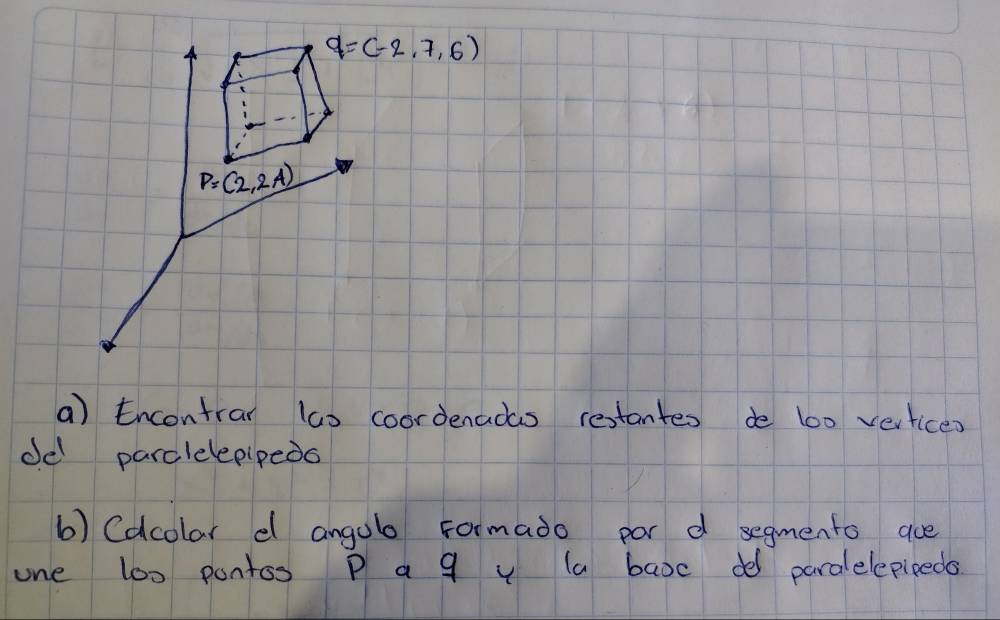 q=(-2,7,6)
P=(2,2,1)
a) Encontrar las coordenadas restantes de los vertices
del paralelepipedo
b) Calcolar el angulo formado por el segmento que
une los pontos P a q y la base del paralelepipedo